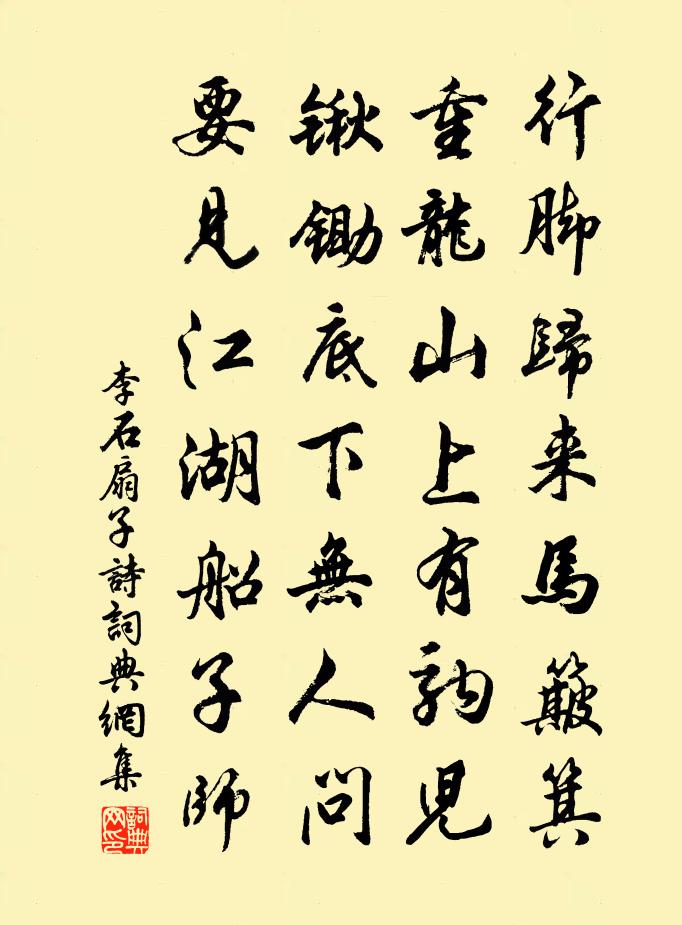 行脚歸来馬簸箕
重龍山上有兒
鍬鋤底下無人問
要見江湖船子師
李石扇子詩詞典網集
詞典网印